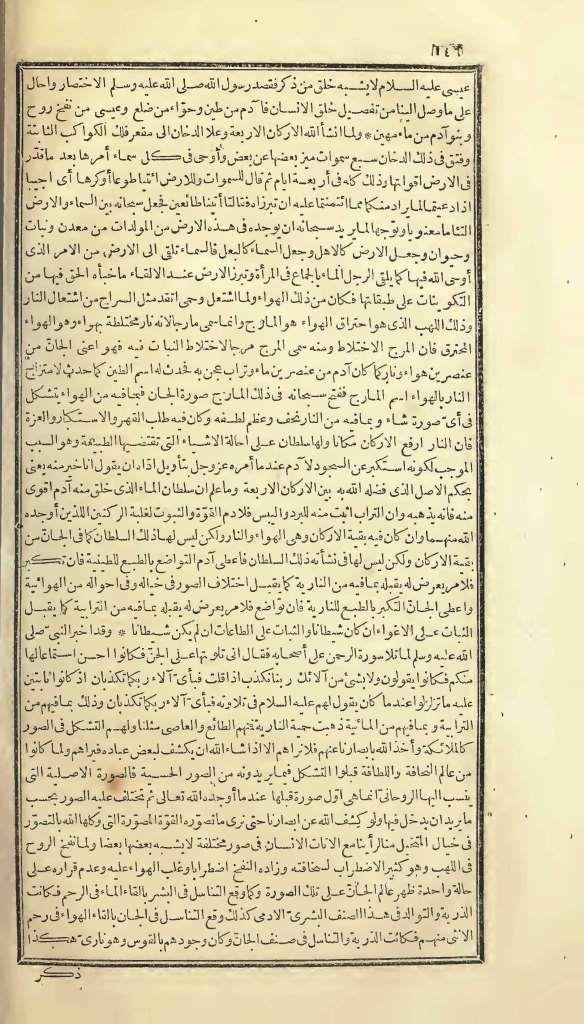 ١٤٩
عيسى عليه السلام لا يشبه خلق من ذكر فقصد رسول الله صلى الله عليه وسلم الاختصار وأحال
على ما وصل الينا من تفصيل خلق الانسان فآدم من طين وحوّاء من ضلع وعيسى من نفخ روح
وبنو آدم من ماء مهين * ولما أنشأ الله الاركان الاربعة وعلا الدخان الى مقعر فلك الكواكب الثابتة
وفتق فى ذلك الدخان سبع سموات ميز بعضها عن بعض وأوحى فى كل سماء أمرها بعد ما قدّر
فى الارض أقواتها وذلك كله فى أربعة أيام ثم قال للسموات وللارض ائتيا طوعا أو كرها أى أجيبا
اذا دعيتما لما يراد منكما مما أتمنتما عليه ان تبرزاه فقالتا أتينا طائعين فجعل سبحانه بين السماء والارض
التئاما معنويا وتوجها لما يريد سبحانه ان يوجده فى هذه الارض من المولدات من معدن ونبات
وحيوان وجعل الارض كالاهل وجعل السماء كالبعل فالسماء تلقى الى الارض من الامر الذى
أوحى الله فيها كما يلقى الرجل الماء بالجماع فى المرأة وتبرز الارض عند الالقاء ما خبأه الحق فيها من
التكوينات على طبقاتها فكان من ذلك الهواء ولما اشتعل وحمى اتقد مثل السراج من اشتعال النار
وذلك اللهب الذى هو احتراق الهواء هو المارج وانما سمى مارجا لانه نار مختلطة بهواء وهو الهواء
المحترق فان المرج الاختلاط ومنه سمى المرج مرجا لاختلاط النبات فيه فهو اعنى الجانّ من
عنصرين هواء ونار كما كان آدم من عنصرين ماء وتراب عجن به فحدث له اسم الطين كما حدث لامتزاج
النار بالهواء اسم المارج ففتح سبحانه فى ذلك المارج صورة الجان فبما فيه من الهواء يتشكل
فى أىّ صورة شاء وبما فيه من النار سخف وعظم لطفه وكان فيه طلب القهر والاستكبار والعزة
فان النار أرفع الاركان مكانا ولها سلطان على احالة الاشياء التى تقتضيها الطبيعة وهو السبب
الموجب لكونه استكبر عن السجود لآدم عند ما أمره عز وجل بتأويل أداه ان يقول أنا خير منه يعنى
بحكم الاصل الذى فضله الله به بين الاركان الاربعة وما علم ان سلطان الماء الذى خلق منه آدم أقوى
منه فانه يذهبه وان التراب اثبت منه للبرد واليبس فلآدم القوّة والثبوت لغلبة الركنين اللذين أوجده
الله منهما وان كان فيه بقية الاركان وهى الهواء والنار ولكن ليس لها ذلك السلطان كما فى الجانّ من
بقية الاركان ولكن ليس لها فى نشأته ذلك السلطان فاعطى آدم التواضع بالطبع للطينية فان تكبر
فلامر يعرض له يقبله بما فيه من النارية كما يقبل اختلاف الصور فى خياله وفى أحواله من الهوائية
وأعطى الجانّ التكبر بالطبع للنارية فان تواضع فلامر يعرض له يقبله بما فيه من الترابية كما يقبل
الثبات على الاغواء ان كان شيطانا والثبات على الطاعات ان لم يكن شيطانا * وقد أخبر النبى صلى
الله عليه وسلم لما تلا سورة الرحمن على أصحابه فقال انى تلوتها على الجنّ فكانوا أحسن استماعا لها
منكم فكانوا يقولون ولا بشئ من آلائك ربنا نكذب اذا قلت فبأىّ آلاء ربكما تكذبان اذ كانوا ثابتين
عليه ما تزلزلوا عند ما كان يقول لهم عليه السلام فى تلاوته فبأىّ آلاء ربكما تكذبان وذلك بما فيهم من
الترابية وبما فيهم من المائية ذهبت حمية النارية فمنهم الطائع والعاصى مثلنا ولهم التشكل فى الصور
كالملائكة وأخذ الله بابصارنا عنهم فلا نراهم الا اذا شاء الله ان يكشف لبعض عباده فيراهم ولما كانوا
من عالم السخافة واللطافة قبلوا التشكل فيما يريدونه من الصور الحسية فالصورة الاصلية التى
ينسب اليها الروحانىّ انما هى أول صورة قبلها عند ما أوجده الله تعالى ثم تختلف عليه الصور بحسب
ما يريد ان يدخل فيها ولو كشف الله عن أبصارنا حتى نرى ما تصوّره القوّة المصوّرة التى وكلها الله بالتصوّر
فى خيال المتخيل منا لرأينا مع الانات الانسان فى صور مختلفة لا يشبه بعضها بعضا ولما نفخ الروح
فى اللهب وهو كثير الاضطراب لسخافته وزاده النفخ اضطرابا وغلب الهواء عليه وعدم قراره على
حالة واحدة ظهر عالم الجانّ على تلك الصورة وكما وقع التناسل فى البشر بالقاء الماء فى الرحم فكانت
الذرية والتوالد فى هذا الصنف البشرىّ الآدمى كذلك وقع التناسل فى الجان بالقاء الهواء فى رحم
الانثى منهم فكانت الذرية والتناسل فى صنف الجانّ وكان وجودهم بالقوس وهو نارىّ هكذا
ذكر